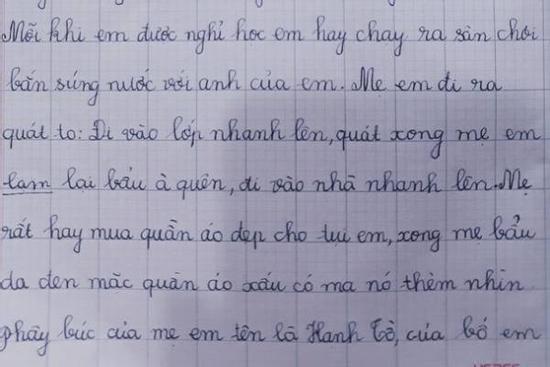 Mỗi khi em được nghỉ học em hay chạy ra sân chơi
bắn súng nước với anh của em. Mẹ em đi ra
quát to: Đi vào lớp nhanh lên, quát xong mẹ em
lam lại bẩu à quên, đi vào nhà nhanh lên. Mẹ
rất hay mua quần áo đẹp cho tụi em, xong mẹ bẩu
da đen mặc quần áo xấu có ma nó thèm nhìn
phây búc của mẹ em tên là Hanh Bò, của bố em